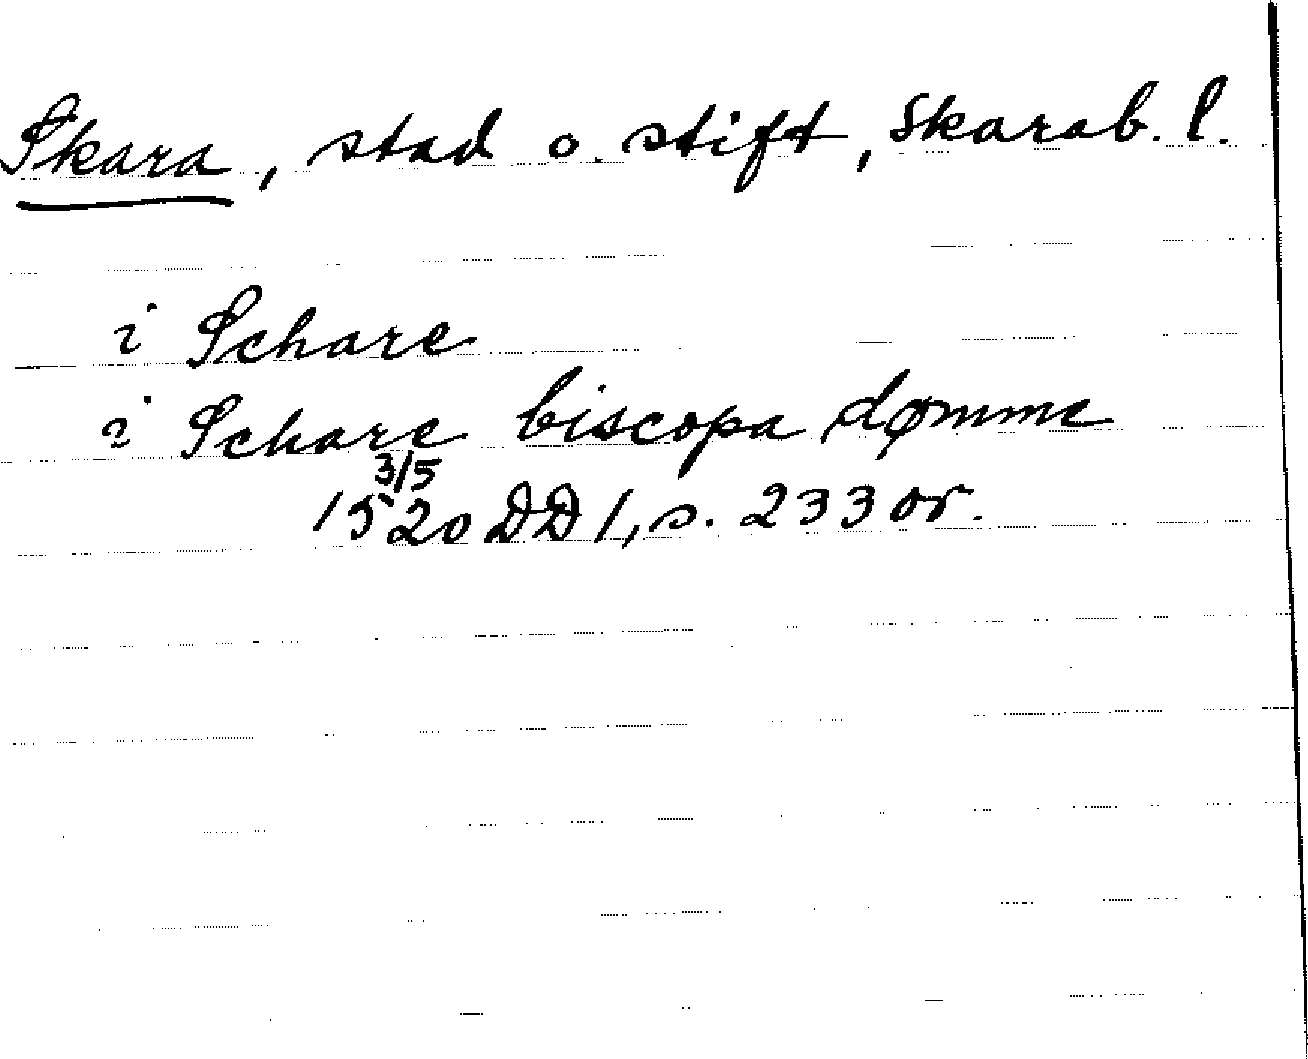 Skara, stad o. stift, Skarab. l.
i Schare
i Schare biscopa dømme
3/5
1520 DD 1, s. 233 or.